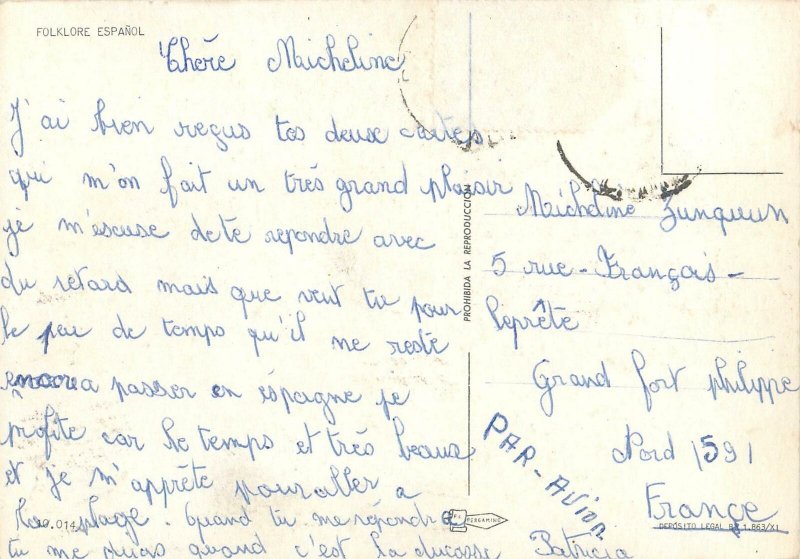 FOLKLORE ESPAÑOL
Chére Micheline
J'ai bien reçus tes deuse cartes
qui m'on fait un trés grand plaisir
je m'escuse de te repondre avec
du retard mais que veut tu pour
le peu de temps qu'il me reste
encore a passer en espagne je
profite car le temps et trés beaux
et je m'apprête pour aller a
la plage. Quand tu me répondra
tu me diras quand c'est la ducasse
Patricia
PROHIBIDA LA REPRODUCCIÓN
Micheline
5 rue - François -
leprête
Grand fort philippe
Nord 591
France
PAR-AVION
19.014
PERGAMINO
DEPÓSITO LEGAL B. 1.863/XI